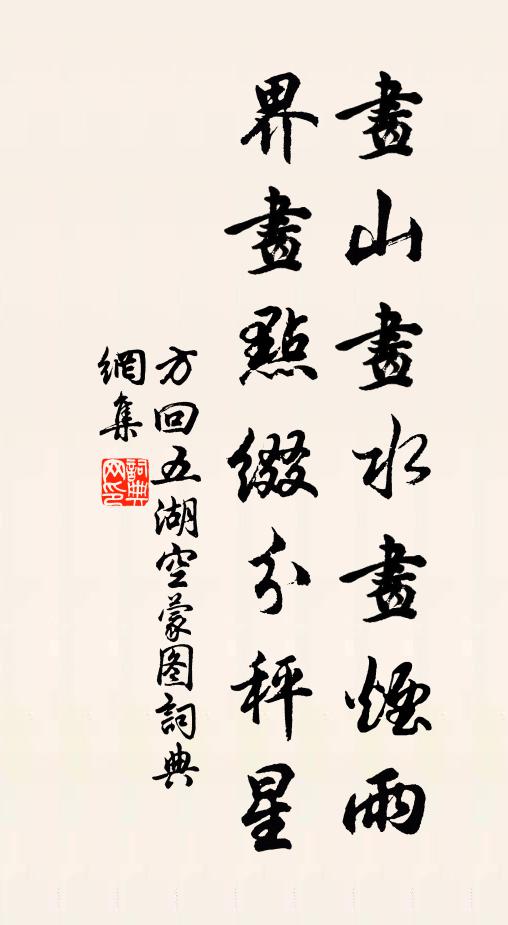 畫山畫水畫煙雨
界畫點綴分秤星
方回五湖空蒙图詞典
網集
詞典
网印